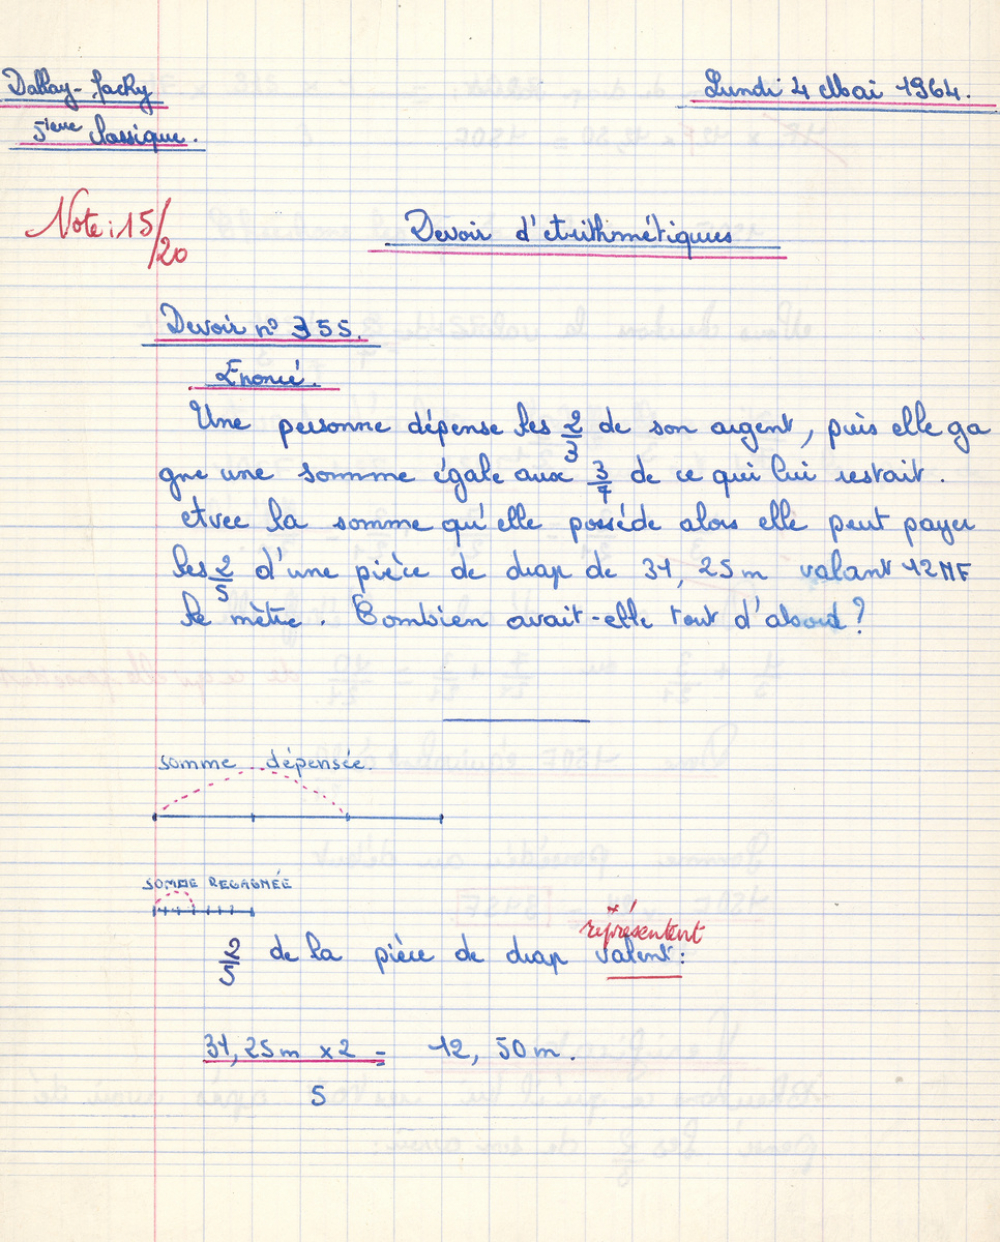 Dallay - Jacky
Lundi 4 Mai 1964.
5ième Classique.
Note : 15/20
Devoir d'Arithmétiques
Devoir n° 355.
Enoncé.
Une personne dépense les 2/3 de son argent, puis elle ga
gne une somme égale aux 3/7 de ce qui lui restait.
Avec la somme qu'elle posséde alors elle peut payer
les 2/5 d'une pièce de drap de 31,25m valant 12 NF
le mètre. Combien avait-elle tout d'abord ?
somme dépensée.
SOMME REGAGNÉE
représentent
2/5 de la pièce de drap valent :
31,25m x 2 = 12,50m.
5